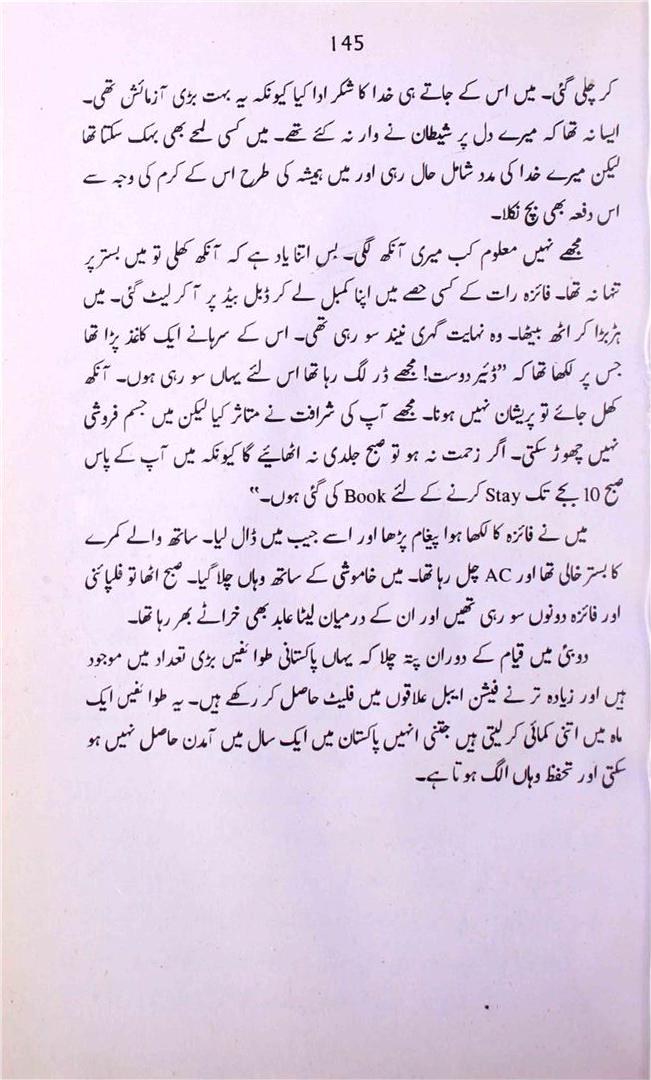 145
کر چلی گئی۔ میں اس کے جاتے ہی خدا کا شکر ادا کیا کیونکہ یہ بہت بڑی آزمائش تھی۔
ایسا نہ تھا کہ میرے دل پر شیطان نے وار نہ کئے تھے۔ میں کسی لمحے بھی بہک سکتا تھا
لیکن میرے خدا کی مدد شامل حال رہی اور میں ہمیشہ کی طرح اس کے کرم کی وجہ سے
اس دفعہ بھی بچ نکلا۔
مجھے نہیں معلوم کب میری آنکھ لگی۔ بس اتنا یاد ہے کہ آنکھ کھلی تو میں بستر پر
تنہا نہ تھا۔ فائزہ رات کے کسی حصے میں اپنا کمبل لے کر ڈبل بیڈ پر آ کر لیٹ گئی۔ میں
ہڑبڑا کر اٹھ بیٹھا۔ وہ نہایت گہری نیند سو رہی تھی۔ اس کے سرہانے ایک کاغذ پڑا تھا
جس پر لکھا تھا کہ ”ڈئیر دوست! مجھے ڈر لگ رہا تھا اس لئے یہاں سو رہی ہوں۔ آنکھ
کھل جائے تو پریشان نہیں ہونا۔ مجھے آپ کی شرافت نے متاثر کیا لیکن میں جسم فروشی
نہیں چھوڑ سکتی۔ اگر زحمت نہ ہو تو صبح جلدی نہ اٹھائیے گا کیونکہ میں آپ کے پاس
صبح 10 بجے تک Stay کرنے کے لئے Book کی گئی ہوں۔“
میں نے فائزہ کا لکھا ہوا پیغام پڑھا اور اسے جیب میں ڈال لیا۔ ساتھ والے کمرے
کا بستر خالی تھا اور AC چل رہا تھا۔ میں خاموشی کے ساتھ وہاں چلا گیا۔ صبح اٹھا تو فلپائنی
اور فائزہ دونوں سو رہی تھیں اور ان کے درمیان لیٹا عابد بھی خراٹے بھر رہا تھا۔
دوبئی میں قیام کے دوران پتہ چلا کہ یہاں پاکستانی طوائفیں بڑی تعداد میں موجود
ہیں اور زیادہ تر نے فیشن ایبل علاقوں میں فلیٹ حاصل کر رکھے ہیں۔ یہ طوائفیں ایک
ماہ میں اتنی کمائی کر لیتی ہیں جتنی انہیں پاکستان میں ایک سال میں آمدن حاصل نہیں ہو
سکتی اور تحفظ وہاں الگ ہوتا ہے۔